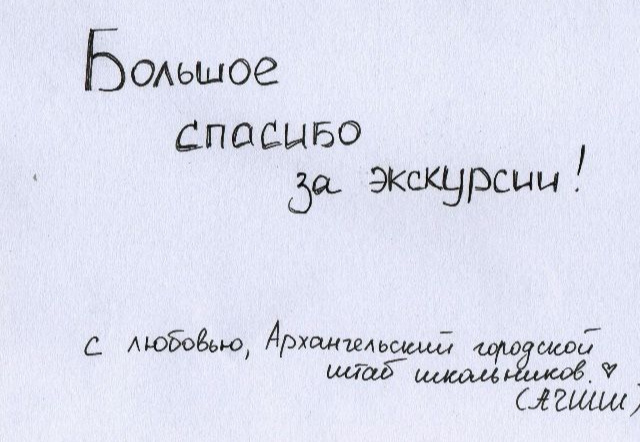 Большое
спасибо
за экскурсии!
с любовью, Архангельский городской
штаб школьников. ♥
(АГШШ)